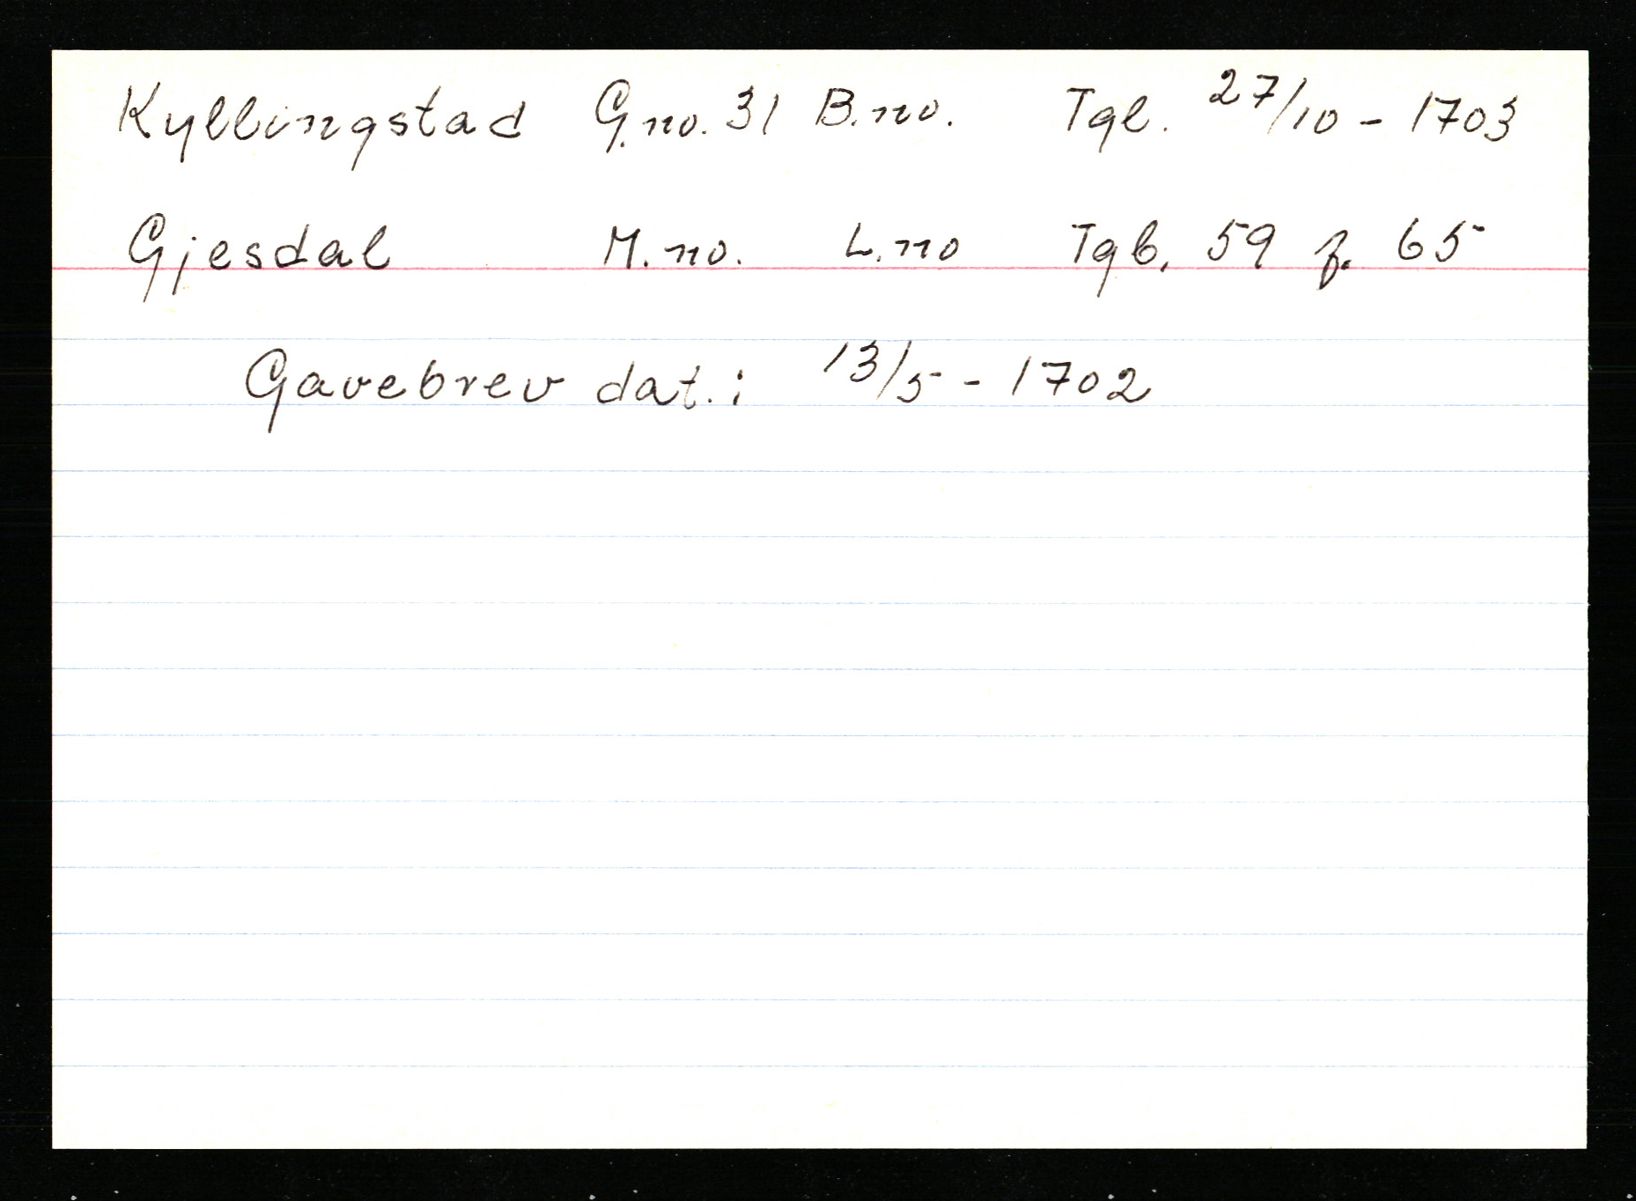 Kyllingstad G.no. 31 B.no. Tgl. 27/10 - 1703
Gjesdal M.no. L.no Tgb. 59 f. 65
Gavebrev dat.: 13/5 - 1702